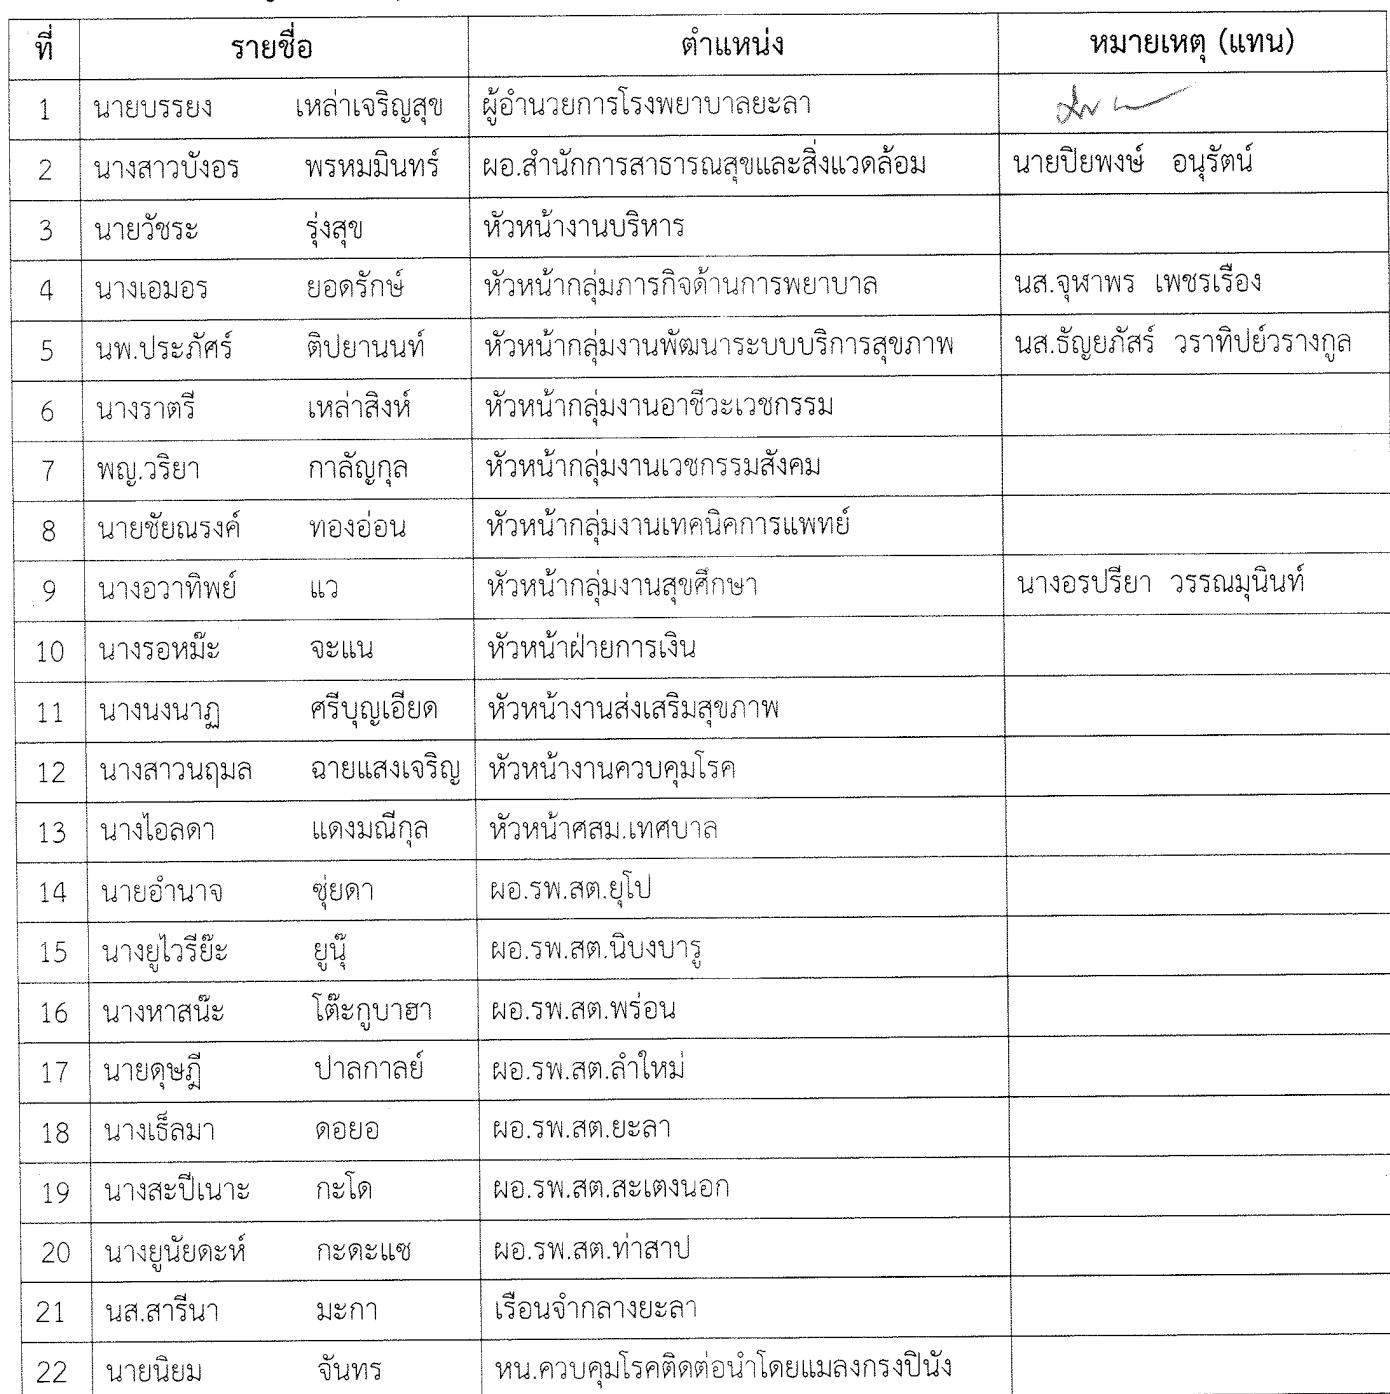 ที่ รายชื่อ ตำแหน่ง หมายเหตุ (แทน)
1 นายบรรยง เหล่าเจริญสุข ผู้อำนวยการโรงพยาบาลยะลา
2 นางสาวบังอร พรหมมินทร์ ผอ.สำนักการสาธารณสุขและสิ่งแวดล้อม นายปิยพงษ์ อนุรัตน์
3 นายวัชระ รุ่งสุข หัวหน้างานบริหาร
4 นางเอมอร ยอดรักษ์ หัวหน้ากลุ่มภารกิจด้านการพยาบาล นส.จุฬาพร เพชรเรือง
5 นพ.ประภัศร์ ติปยานนท์ หัวหน้ากลุ่มงานพัฒนาระบบบริการสุขภาพ นส.ธัญยภัสร์ วราทิปย์วรางกูล
6 นางราตรี เหล่าสิงห์ หัวหน้ากลุ่มงานอาชีวะเวชกรรม
7 พญ.วริยา กาลัญกุล หัวหน้ากลุ่มงานเวชกรรมสังคม
8 นายชัยณรงค์ ทองอ่อน หัวหน้ากลุ่มงานเทคนิคการแพทย์
9 นางอวาทิพย์ แว หัวหน้ากลุ่มงานสุขศึกษา นางอรปรียา วรรณมุนินท์
10 นางรอหม๊ะ จะแน หัวหน้าฝ่ายการเงิน
11 นางนงนาฏ ศรีบุญเอียด หัวหน้างานส่งเสริมสุขภาพ
12 นางสาวนฤมล ฉายแสงเจริญ หัวหน้างานควบคุมโรค
13 นางไอลดา แดงมณีกุล หัวหน้าศสม.เทศบาล
14 นายอำนาจ ซุ่ยดา ผอ.รพ.สต.ยุโป
15 นางยูไวรีย๊ะ ยูนุ๊ ผอ.รพ.สต.นิบงบารู
16 นางหาสน๊ะ โต๊ะกูบาฮา ผอ.รพ.สต.พร่อน
17 นายดุษฎี ปาลกาลย์ ผอ.รพ.สต.ลำใหม่
18 นางเธ็ลมา ดอยอ ผอ.รพ.สต.ยะลา
19 นางสะปีเนาะ กะโด ผอ.รพ.สต.สะเตงนอก
20 นางยูนัยดะห์ กะดะแซ ผอ.รพ.สต.ท่าสาป
21 นส.สารีนา มะกา เรือนจำกลางยะลา
22 นายนิยม จันทร หน.ควบคุมโรคติดต่อนำโดยแมลงกรงปินัง